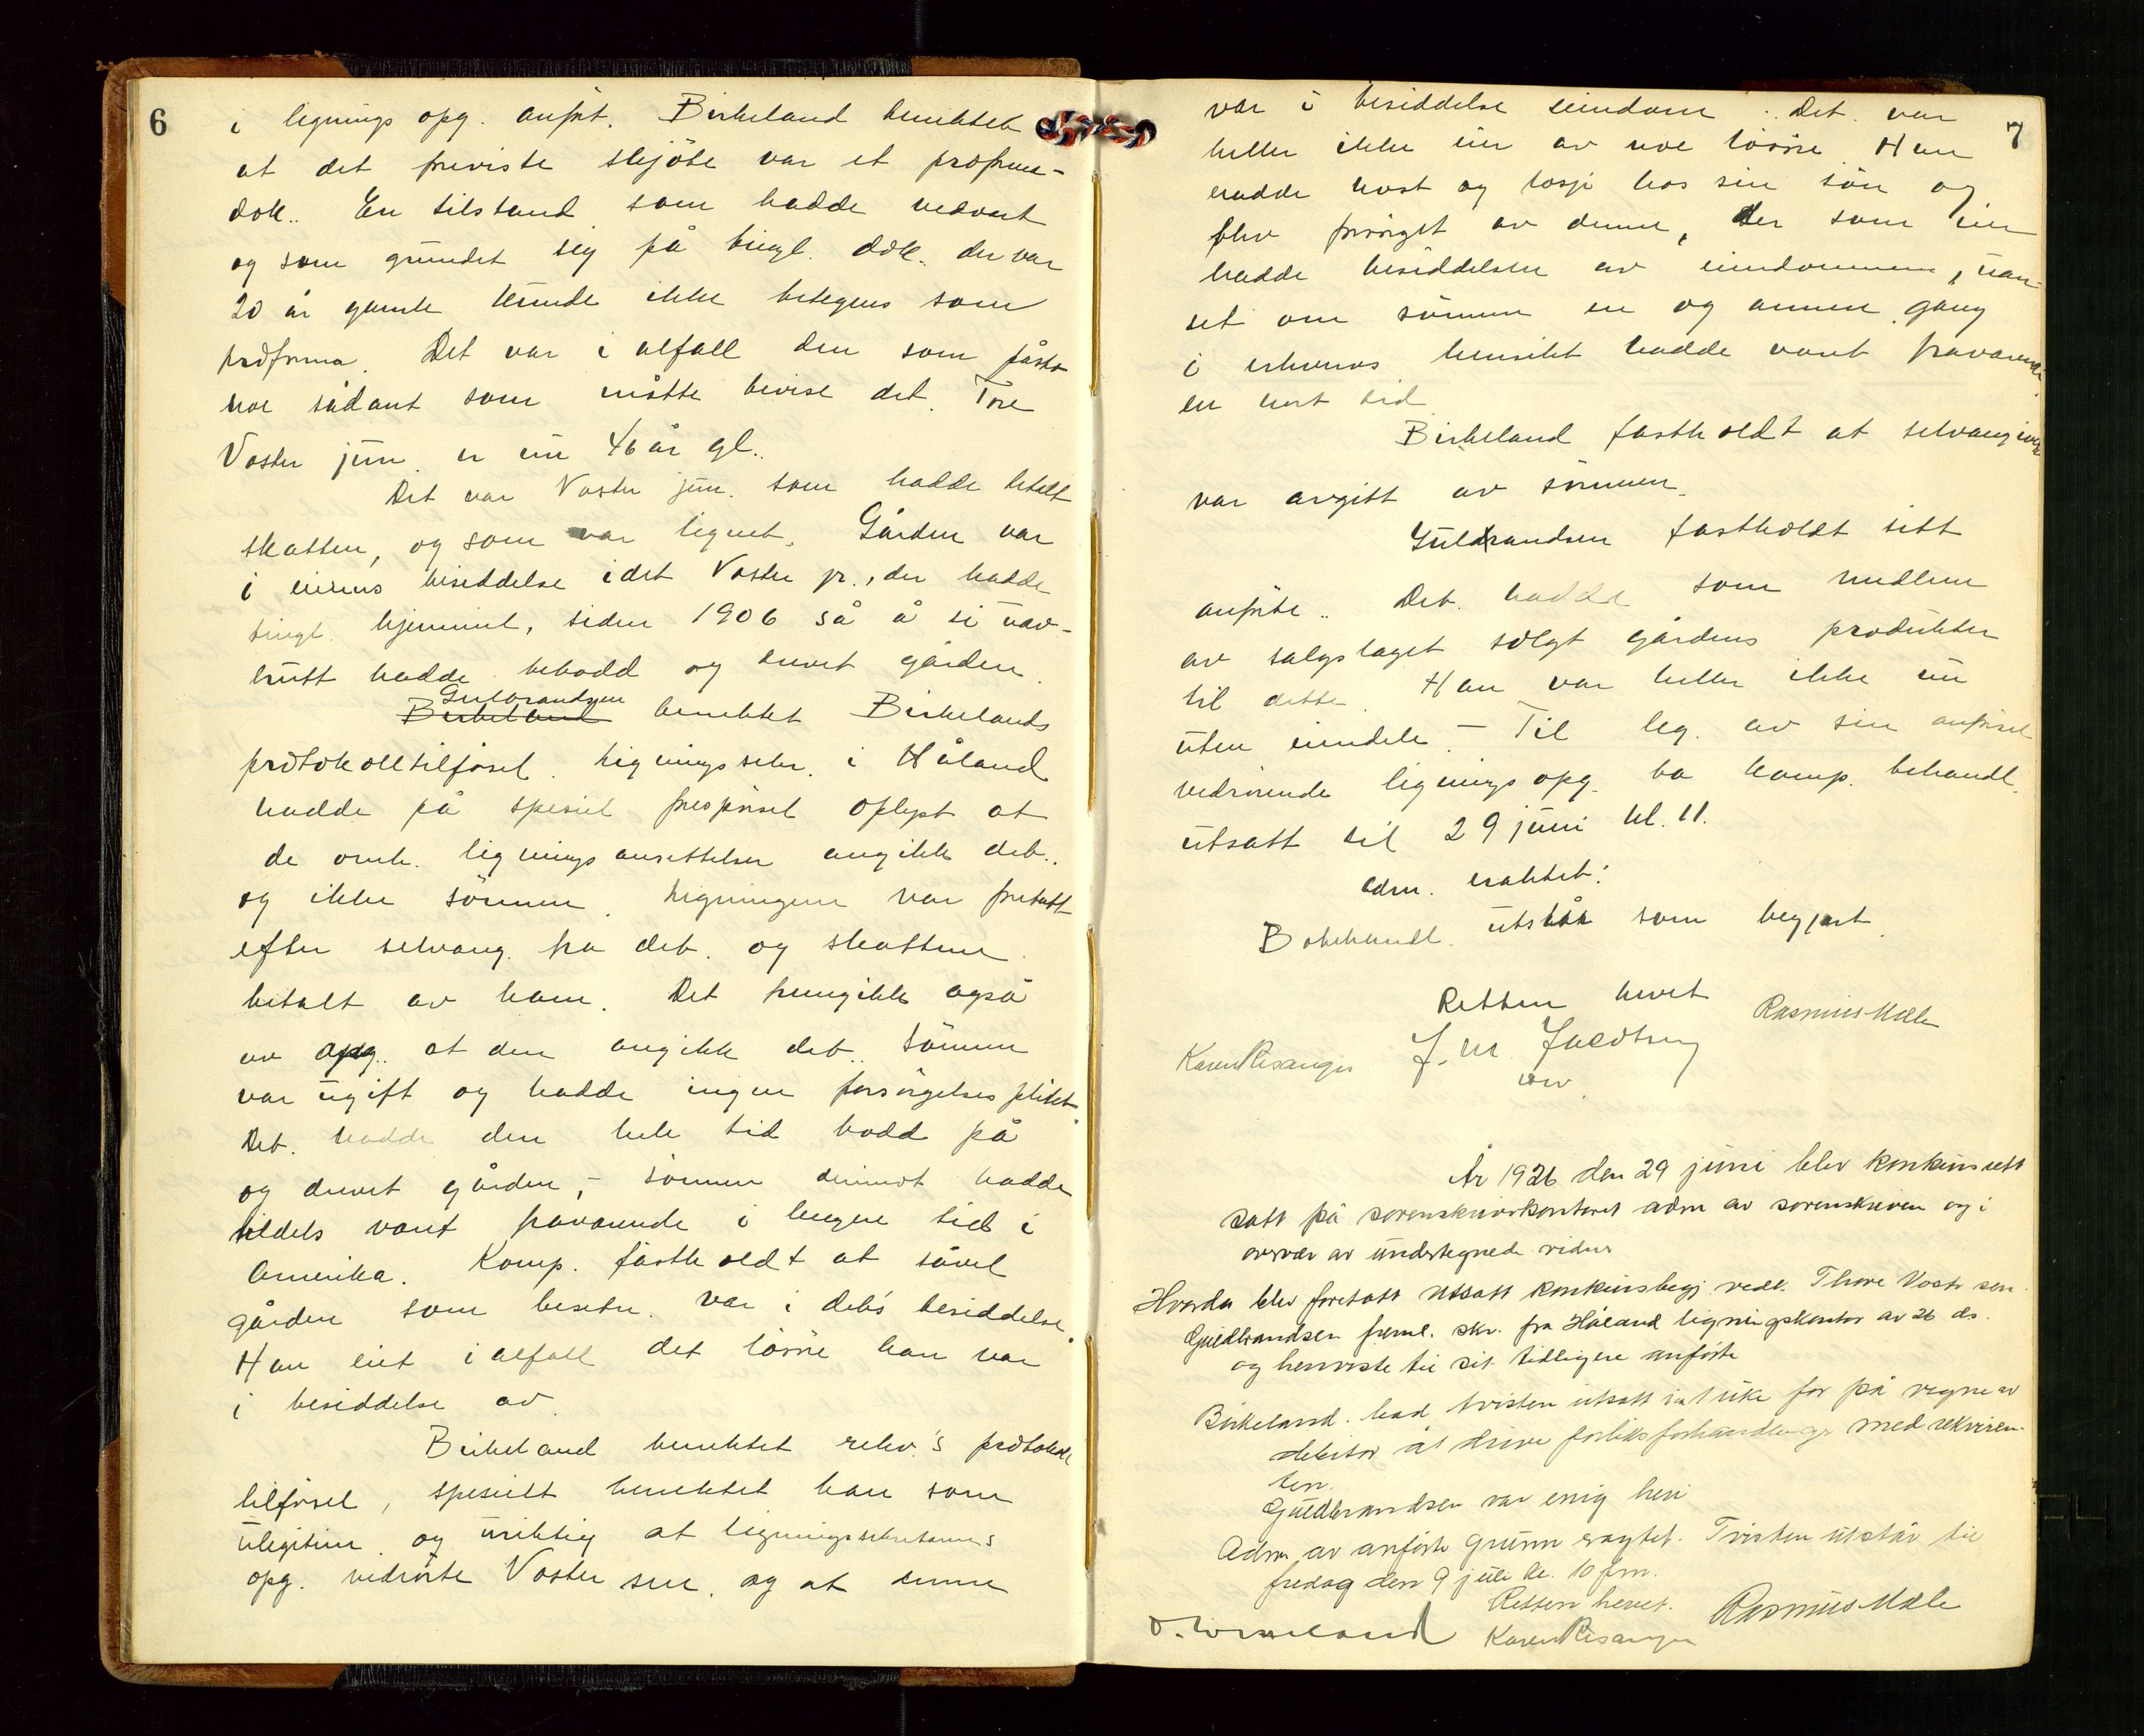 6
i lignings opg. anført. Birkeland benektet
at det freviste skjöte var et proforma-
dok.. En tilstand som hadde vedvart
og som grundet sig på tingl. dok. der var
20 år gamle kunde ikke betegnes som
proforma. Det var i alfall den som påsto
noe sådant som måtte bevise det. Tore
Vaster jun. er nu 46 år gl..
Det var Vaster jun. som hadde betalt
skatten, og som var lignet. Gården var
i eierens besiddelse idet Vaster jr., der hadde
tingl. hjemmel, siden 1906 så å si uav-
brutt hadde bebodd og drevet gården.
Gulbrandsen
Birkeland benektet Birkelands
protokolltilförsel. Ligningssekr. i Håland
hadde på spesiel forespörsel oplyst at
de omh. ligningsansettelser angikk deb..
og ikke sönnen. Ligningene var foretatt
efter selvang. fra deb. og skattene
betalt av ham. Det fremgikk også
av opg. at den angikk deb.. Sönnen
var ugift og hadde ingen forsörgelsesplikt.
Deb. hadde den hele tid bodd på
og drevet gården, - sönnen derimot hadde
tildels vært fraværende i lengere tid i
Amerika. Komp. fastholdt at såvel
gården som besetn. var i deb's besiddelse.
Han eiet i alfall det lösöre han var
i besiddelse av.
Birkeland benektet rekv.'s protokoll
tilförsel, spesielt benektet han som
ulegitim. og uriktig at ligningssekretærens
opg. vedrörte Vaster sen. og at denne
7
var i besiddelse eiendom. Deb. var
heller ikke eier av noe lösöre. Han
hadde kost og losji hos sin sön og
blev forsörget av denne, der som eier
hadde besiddelsen av eiendommen, uan-
set om sönnen en og annen gang
i erhvervs henseikt hadde vært fraværende
en kort tid.
Birkeland fastholdt at selvangivelse
var avgitt av sönnen.
Guldbrandsen fastholdt sitt
anförte.. Deb. hadde som medlem
av salgslaget solgt gårdens produkter
til dette. Han var heller ikke nu
uten eiendele. - Til leg. av sin anförsel
vedrörende ligningsopg. ba komp. behandl.
utsatt til 29 juni kl. 11.
Adm. eraktet:
Bobehandl. utstår som begjært.
Retten hevet
Rasmus Mæle
Karen Risanger
År 1926 den 29 juni blev konkursrett
satt på sorenskriverkontoret adm av sorenskriveren og i
overvær av undertegnede vidner
Hvorda blev foretatt utsatt konkursbegj. vedk. Thore Vaster sen.
Guldbrandsen freml. skr. fra Håland ligningskontor av 26 ds.
og henviste til sit tidligere anförte
Birkeland. bad tvisten utsatt i 1 uke for på vegne av
debitor at drive forliksforhandlinger med rekviren-
ten.
Guldbrandsen var enig heri
Adm av anförte grunn eragtet. Tvisten utstår til
fredag den 9 juli kl. 10 fm.
Retten hevet.
Rasmus Mæle
Karen Risanger